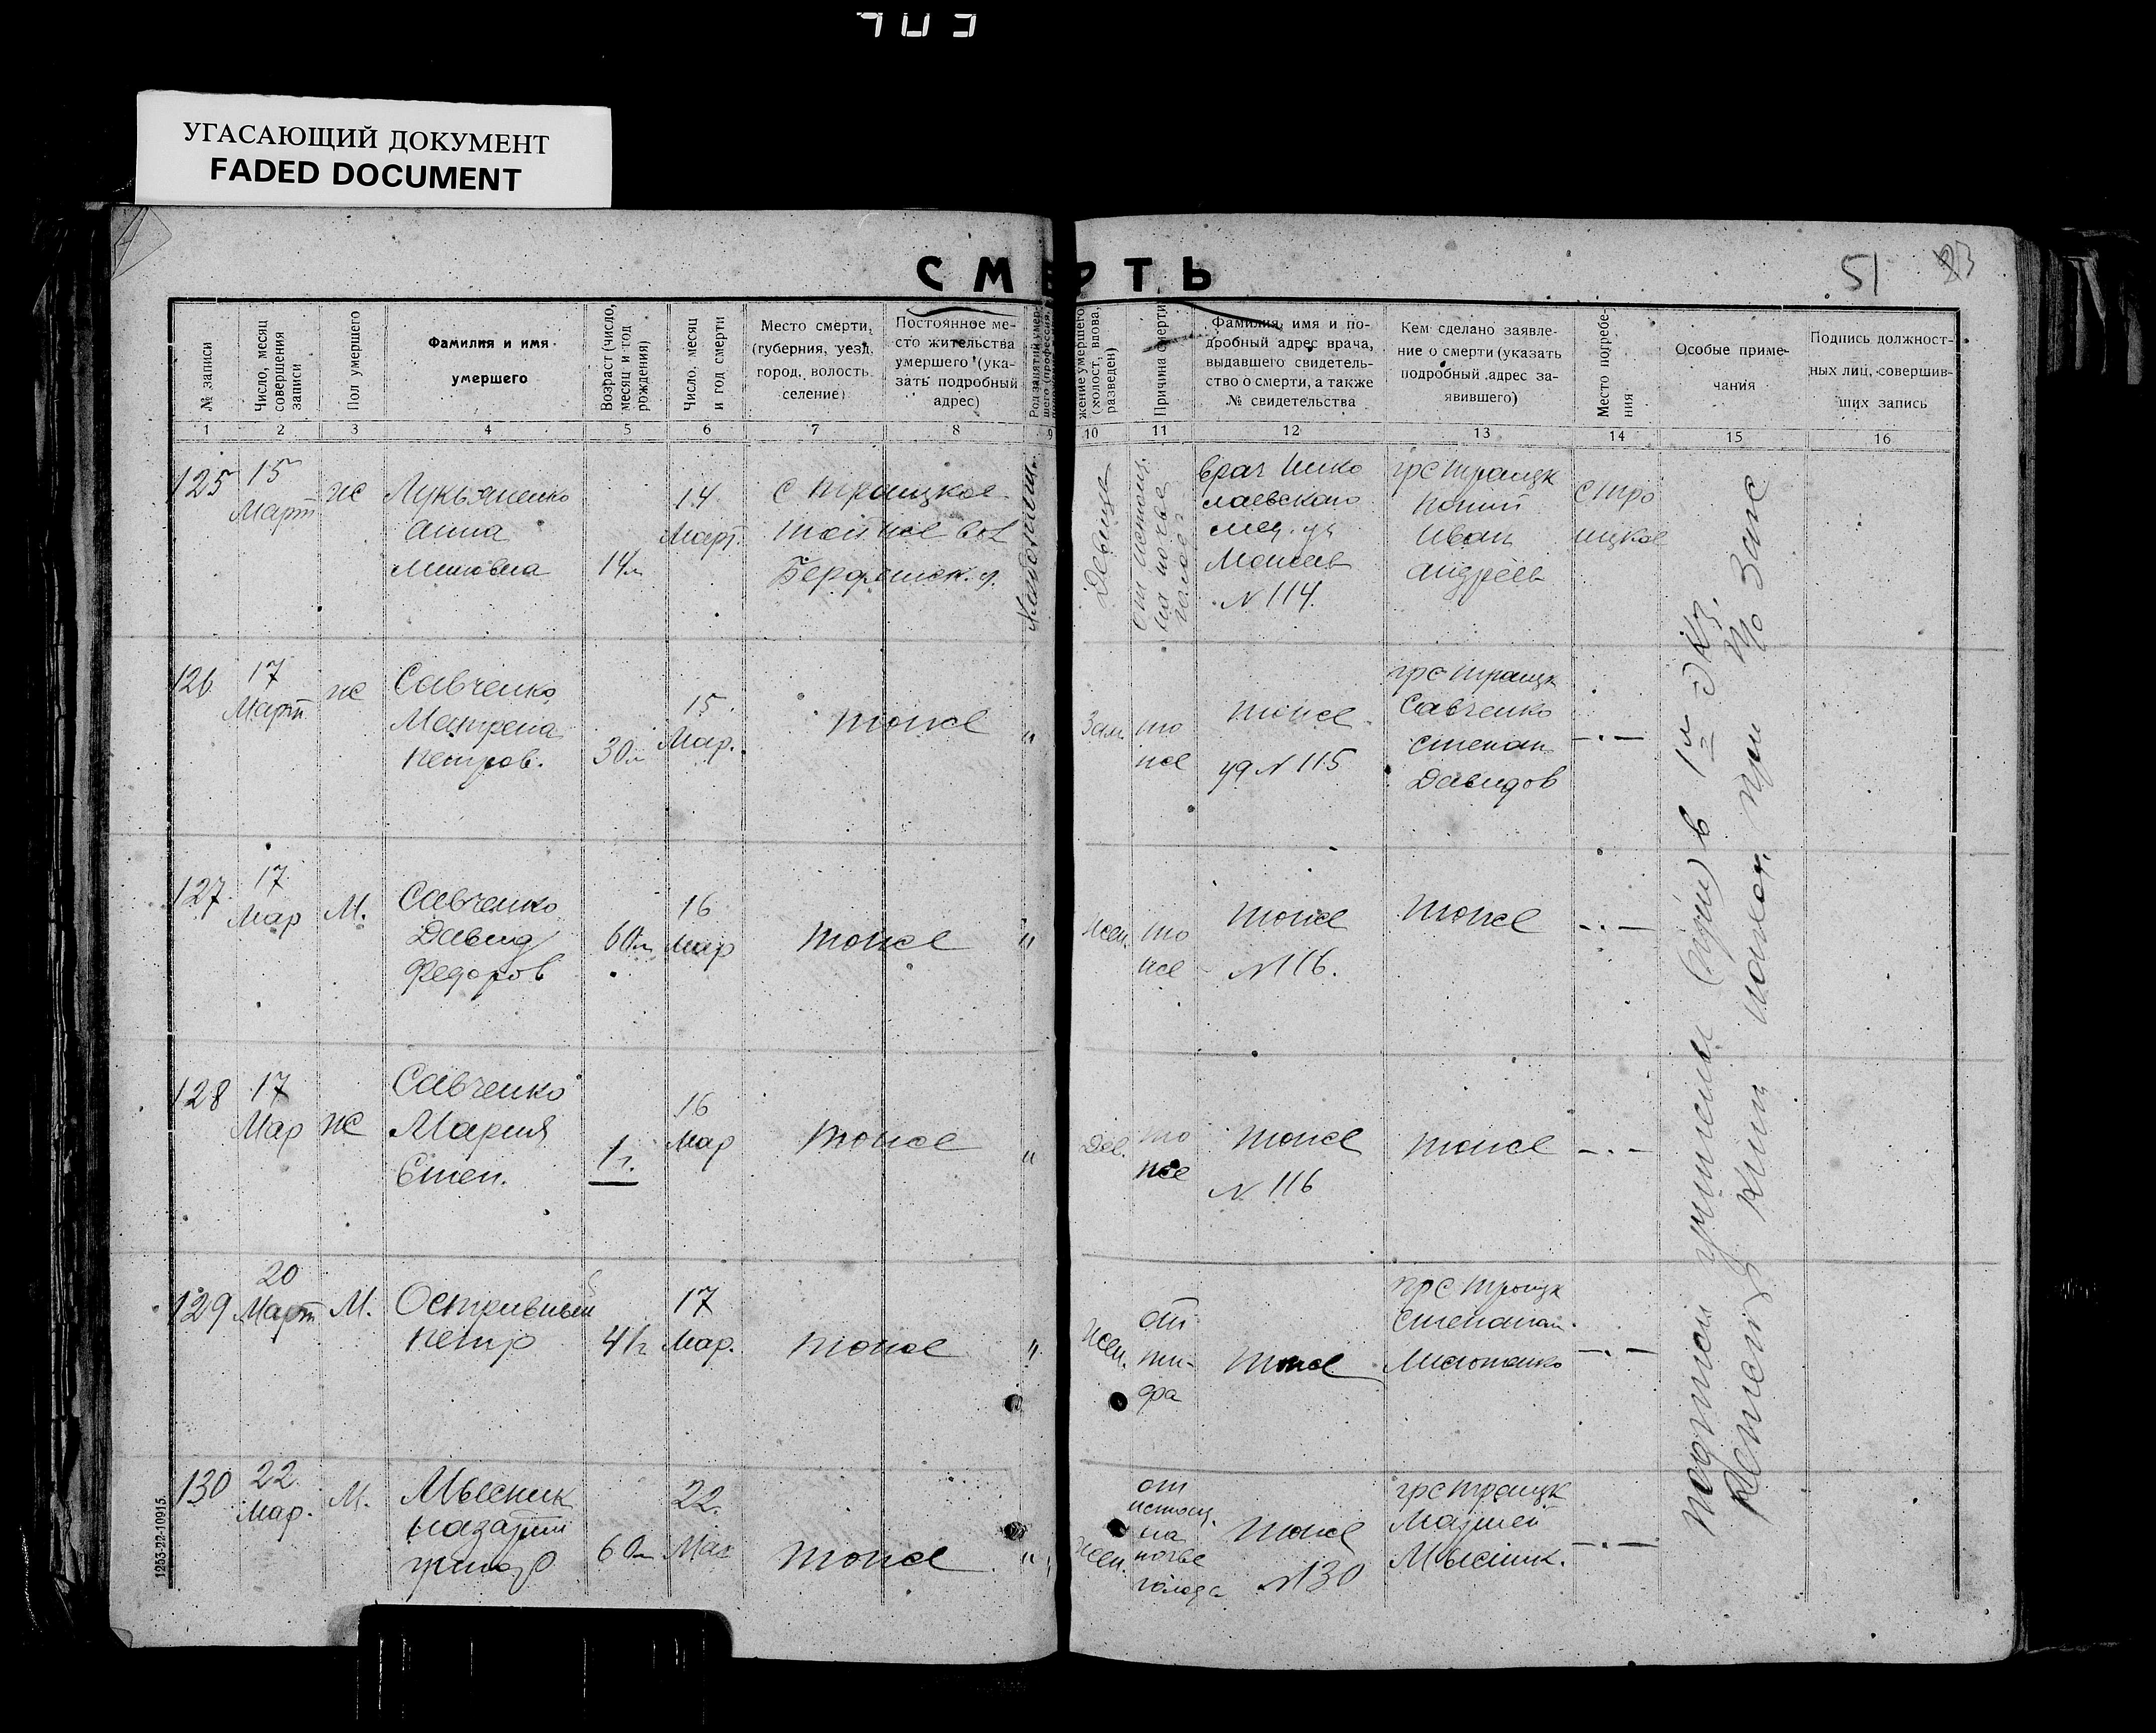 903
УГАСАЮЩИЙ ДОКУМЕНТ
FADED DOCUMENT
СМЕРТЬ
51
№ записи
Число, месяц совершения записи
Пол умершего
Фамилия и имя умершего
Возраст (число, месяц и год рождения)
Число, месяц и год смерти
Место смерти, (губерния, уезд, город, волость селение)
Постоянное место жительства умершего (указать подробный адрес)
Причина смерти
Фамилия, имя и подробный адрес врача, выдавшего свидетельство о смерти, а также № свидетельства
Кем сделано заявление о смерти (указать подробный адрес заявившего)
Место погребения
Особые примечания
Подпись должностных лиц, совершивших запись
1 2 3 4 5 6 7 8 9 10 11 12 13 14 15 16
125
15
Март
ж
Лукьяненко
Анна
14л
14
Март.
с Троицкое
Бердянск. у.
Девица
от истощ.
на почве
врач Нико
лаевского
мед. уч
№ 114
гр с Троицк
Иван
Андреев
с Тро
ицкое
126
17
Март
ж
Савченко
Матрена
Петров.
30л
15
Мар.
тоже
"
Зам.
то
же
тоже
уд № 115
гр с Троицк
Савченко
Степан
Давидов
—·—
127
17
Мар
М.
Савченко
Давид
Федоров
60л
16
Мар
тоже
"
жен.
то
же
тоже
№ 116.
тоже
—·—
128
17
Мар
ж
Савченко
Мария
Степ.
1г.
16
Мар
тоже
"
Дев.
то
же
тоже
№ 116
тоже
—·—
129
20
Март
М.
Остривный
Петр
41г
17
Мар.
тоже
"
жен.
от
ти-
фа
тоже
гр с Троицк
—·—
130
22
Мар.
М.
Мысник
Назарий
60л
22
Мар
тоже
"
жен.
от
истощ.
на
почве
голода
тоже
№ 130
гр с Троицк
Матвей
Мысник.
—·—
в 1м экз.
1253-22-10915